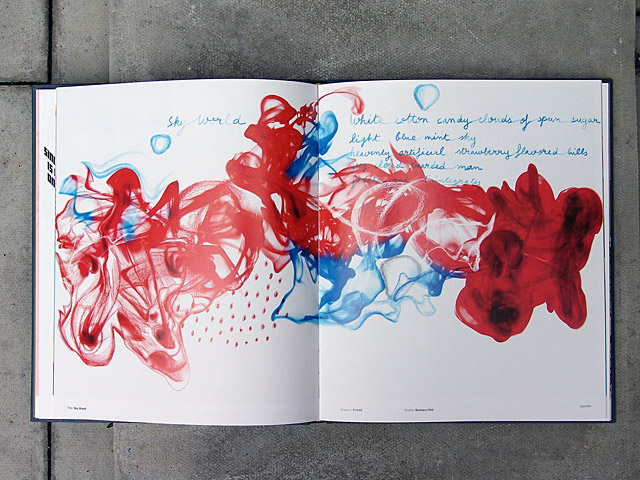 Sky World
White cotton candy clouds of spun sugar
light blue mint sky
heavenly artificial strawberry flavored hills
bearded man
Sky World
Poetry: Barbara